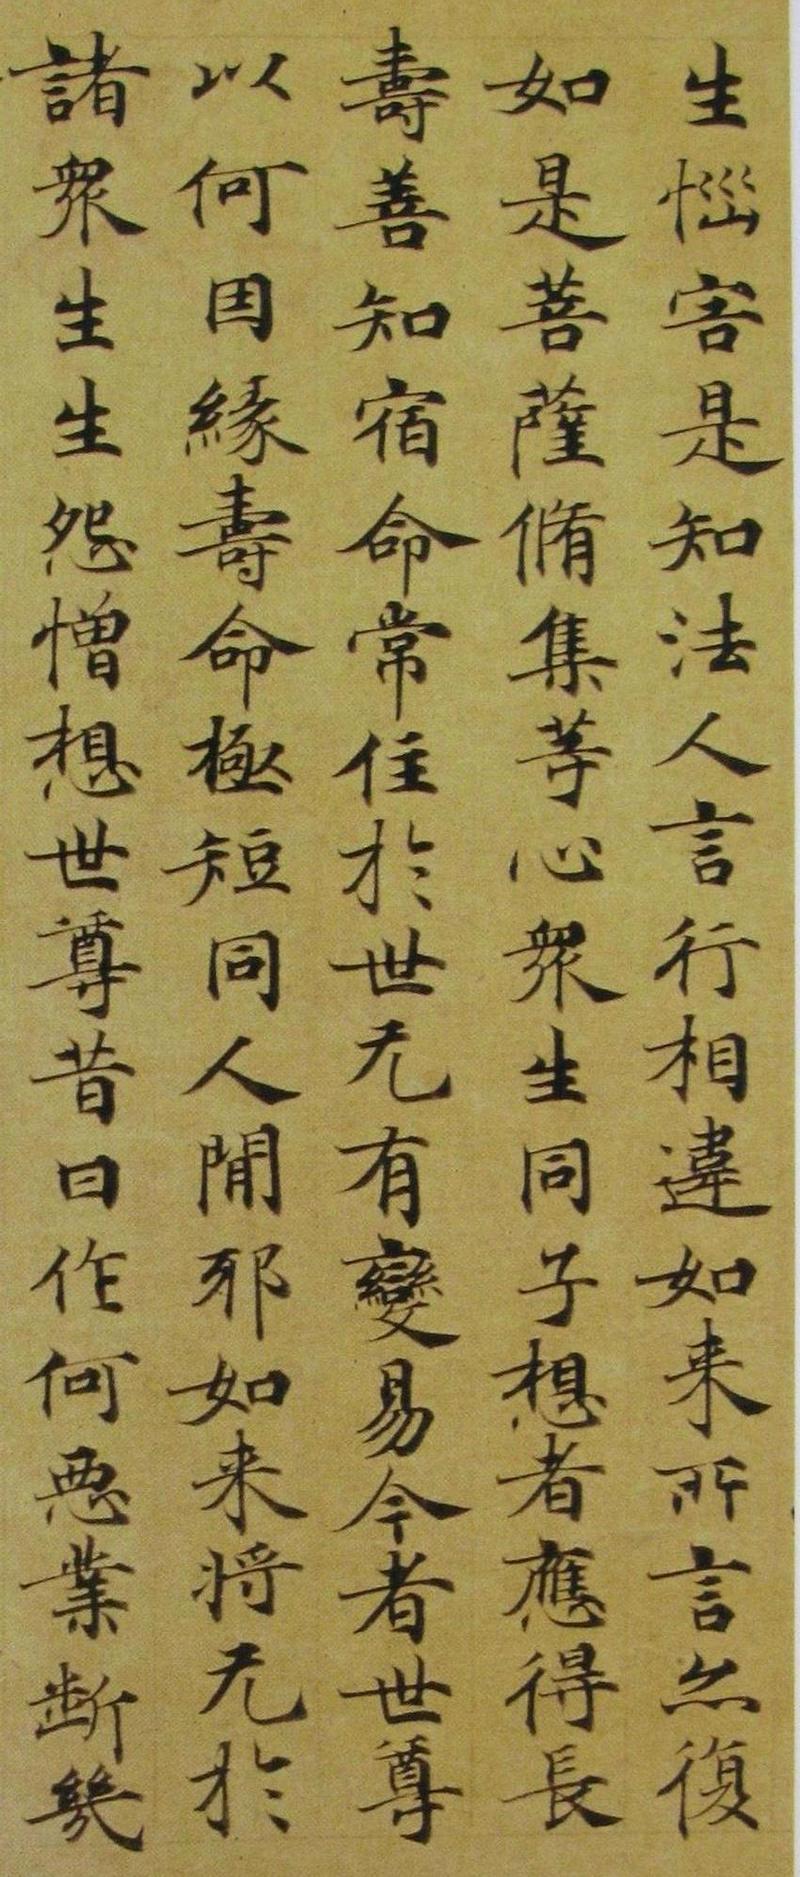 生惱害是知法人言行相違如来所言亦復
如是菩薩脩集等心衆生同子想者應得長
壽善知宿命常住於世无有變易今者世尊
以何因緣壽命極短同人間邪如来将无於
諸衆生生怨憎想世尊昔日作何惡業斷幾